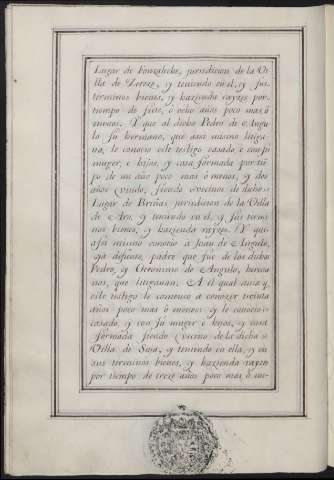 Lugar de Fonzaleche, jurisdicion de la Vi
lla de Zerezo, y teniendo en el, y sus
terminos bienes, y hazienda rayzes por
tiempo de siete, ó ocho años poco mas ó
menos. Y que al dicho Pedro de Angu
lo su hermano, que assi mismo litiga
va, le conocio este testigo casado, e con su
muger, e hijos, y casa formada por ti
po de un año poco mas ó menos, y dos
años Viudo, siendo Vecino del dicho
Lugar de Briñas jurisdicion de la Villa
de Aro, y teniendo en el, y sus termi
nos bienes, y hazienda rayzes. Y que
assi mismo conocio a Juan de Angulo,
ya difunto, padre que fue de los dichos
Pedro, y Geronimo de Angulo, herma
nos, que litigavan; A el qual avia, q
este testigo le comenzo a conozer treinta
años poco mas ó menos: y le conocio
casado, y con su muger e hijos, y casa
formada siendo Vecino de la dicha
Villa de Saja, y teniendo en ella, y en
sus terminos bienes, y hazienda rayzes
por tiempo de treze años poco mas ó me-